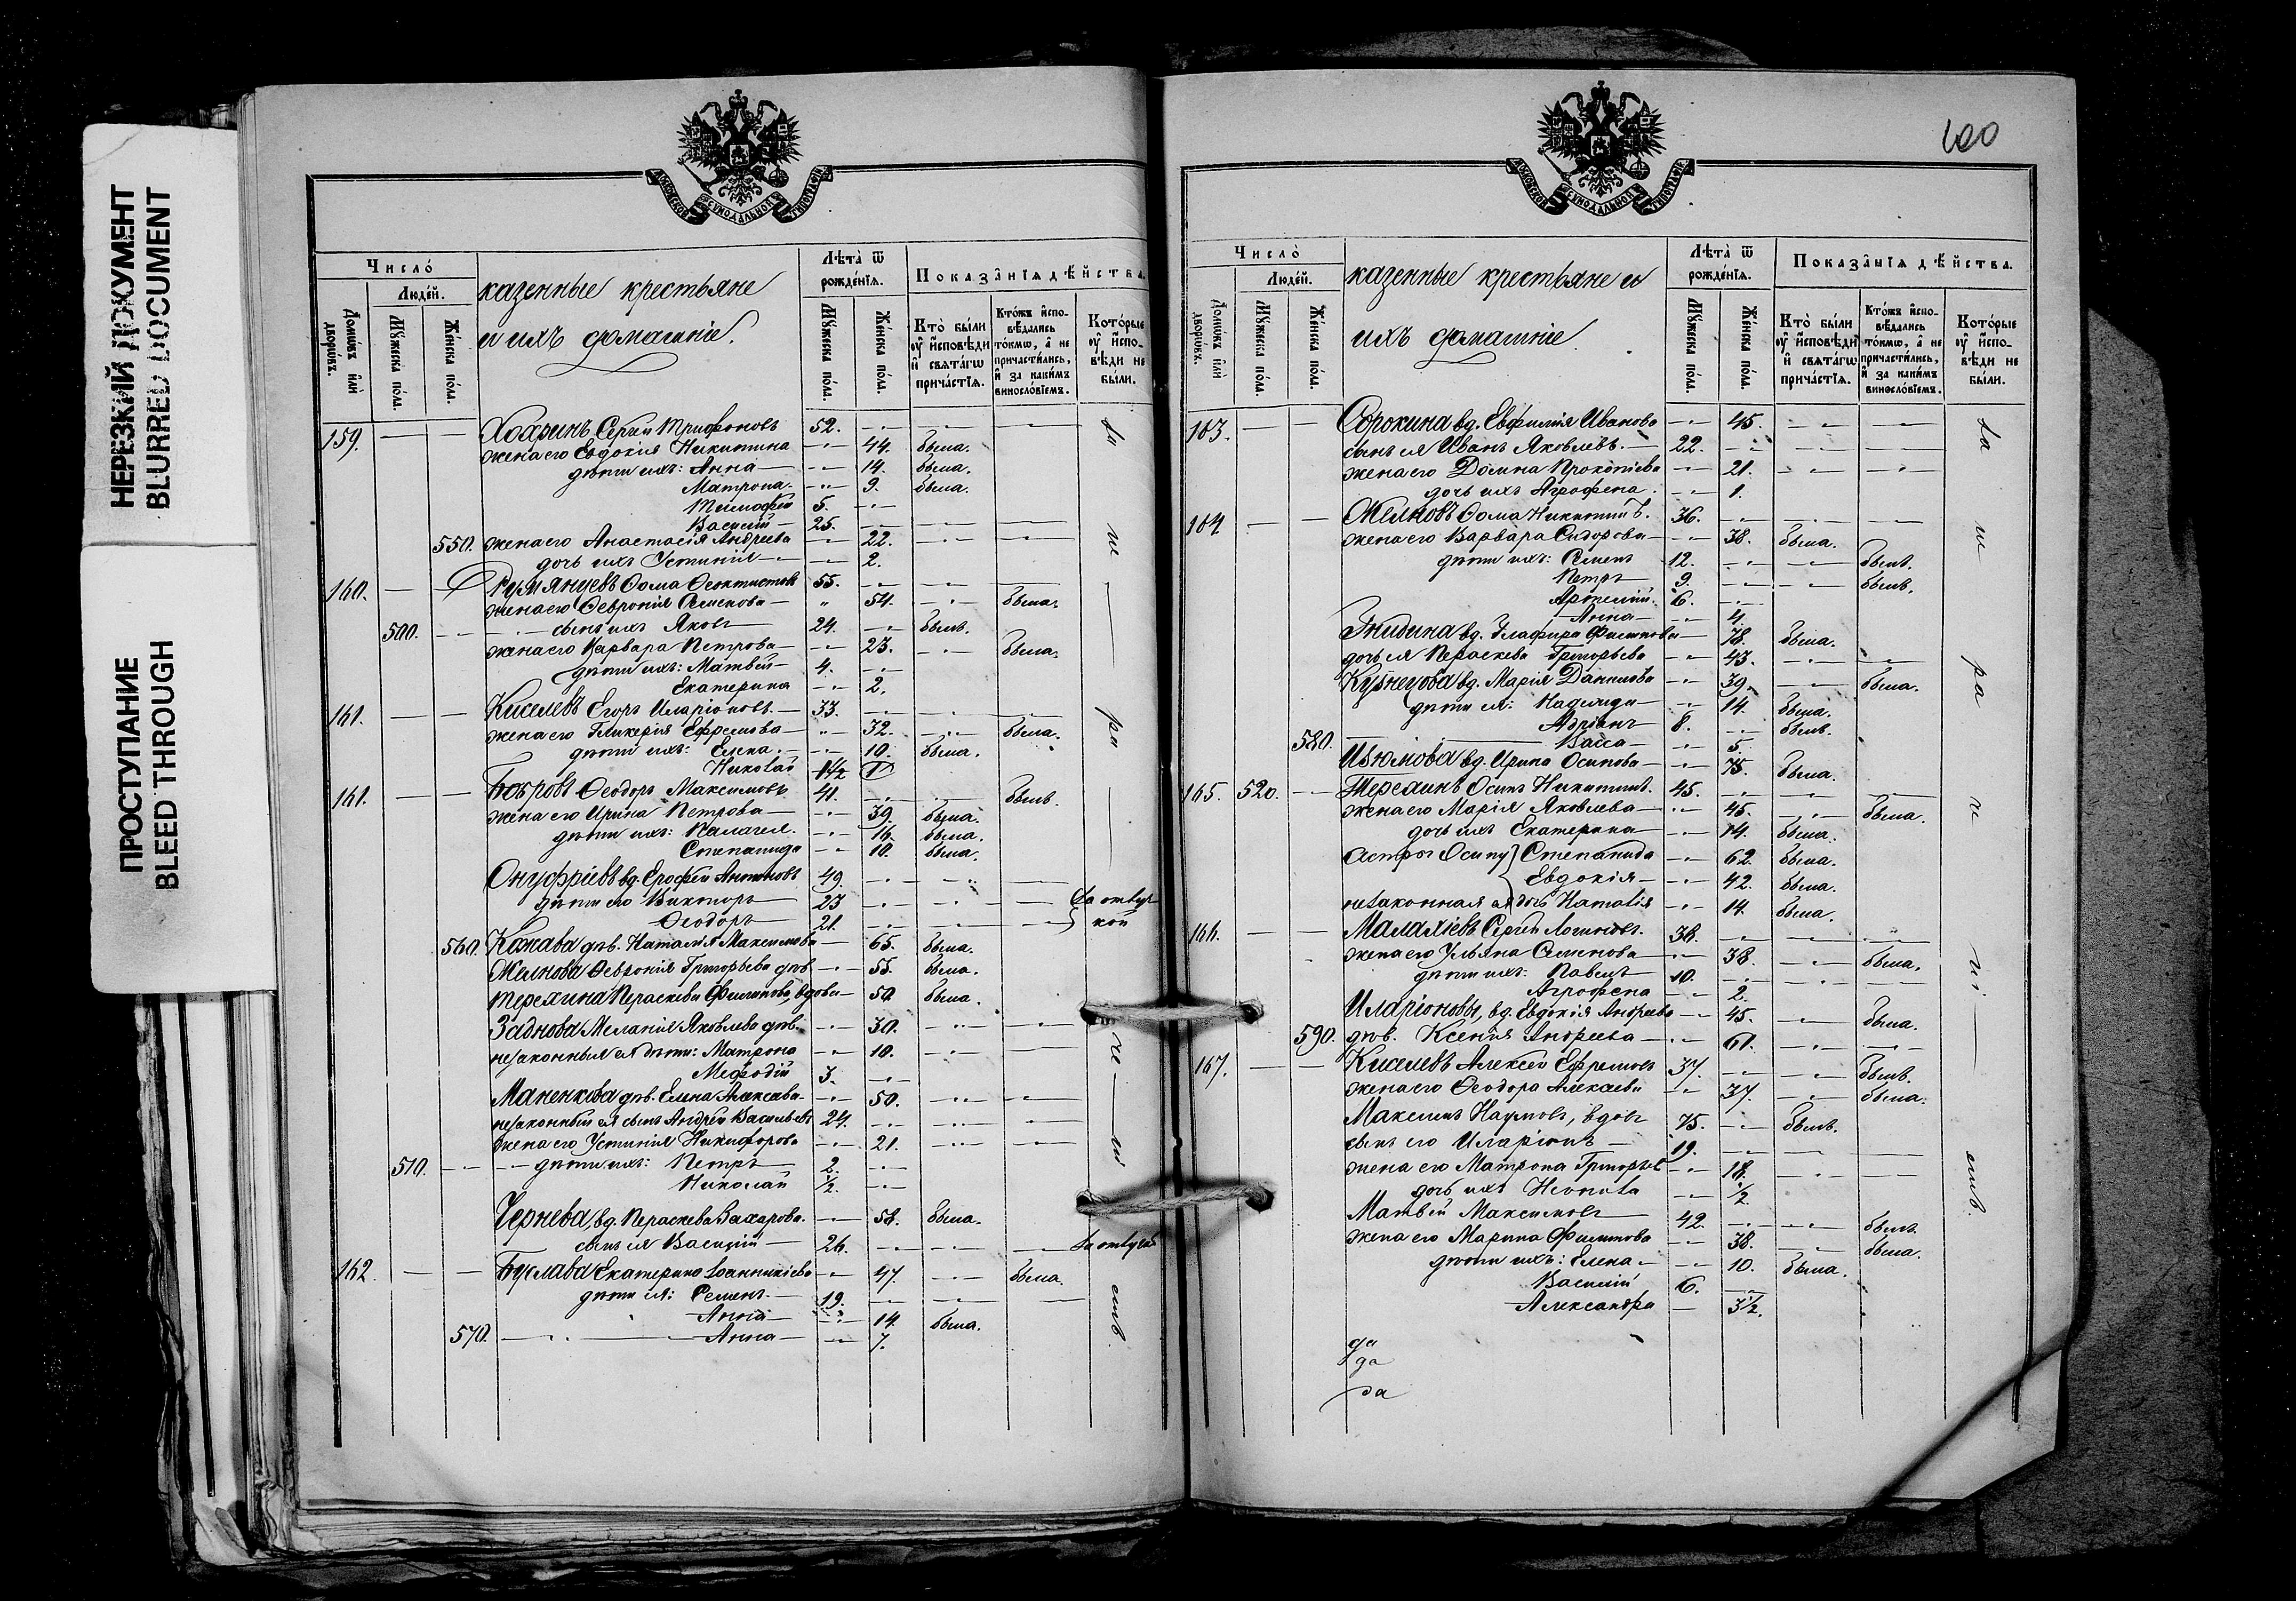 НЕРЕЗКИЙ ДОКУМЕНТ
BLURRED DOCUMENT
ПРОСТУПАНИЕ
BLEED THROUGH
МОСКОВСКОЙ СѴНОДАЛЬНОЙ ТИПОГРАФІИ
Число̀
Людей.
Домѡвъ и҆лѝ дворѡвъ.
Мꙋжеска пола.
Женска пола.
казенные крестьяне
и ихъ домашніе.
Лѣта̀ ѿ рожденїѧ.
Мꙋжеска пола.
Женска пола.
Показанїѧ дѣйства.
Кто̀ были ᲂу҆ и҆сповѣди и҆ свѧтагѡ причастїѧ.
Ктож̾ и҆спо-вѣдались токмѡ, а҆ не причастились, и҆ за какимъ винословїемъ.
Которые ᲂу҆ и҆спо-вѣди не были.
159. Хохринъ Сергѣй Трифоновъ 52.
жена его Евдокія Никитина 44. была.
дѣти ихъ: Анна 14. была.
Матрона 9. была.
Тимофей 5.
Василій 25.
550. жена его Анастасія Андреева 22.
дочь ихъ Устинія 2.
160. Румянцевъ Ѳома Ѳеоктистов 55.
жена его Ѳевронія Семенова 54. была.
500. сынъ ихъ Яковъ 24. былъ.
жена его Варвара Петрова 23. была.
дѣти ихъ: Матвѣй 4.
Екатерина 2.
161. Киселевъ Егоръ Иларіоновъ 33.
жена его Гликерія Ефремова 32. была.
дѣти ихъ: Елена 10. была.
Николай 1 1/2
161. Бобровъ Ѳеодоръ Максимовъ 41. былъ.
жена его Ирина Петрова 39. была.
дѣти ихъ: Палагея 16. была.
Степанида 10. была.
Онуфріевъ вд. Ерофей Антиповъ 49.
дѣти его Викторъ 23
Ѳеодоръ 21. За отлуч
кой
560. дѣв. Наталія Максимова 65. была.
Желнова Ѳевронія Григорьева дѣв. 55. была.
Терехина Параскева Филипова, вдова 50. была.
Заднова Меланія Яковлева дѣв. 30.
незаконныя ея дѣти: Матрона 10.
Меѳодій 3.
Маненкова дѣв. Елена Алексѣева 50.
незаконный ея сынъ Андрей Васильевъ 24.
жена его Устинія Никифорова 21.
510. дѣти ихъ: Петръ 2.
Николай 1/2.
Чернева, вд. Параскева Захарова 58. была.
сынъ ея Василій 26. За отлуч
162. Екатерина Іоанникіева 47. была.
дѣти ея: Семенъ 19.
Анна 14. была.
570. Анна 7.
МОСКОВСКОЙ СѴНОДАЛЬНОЙ ТИПОГРАФІИ
Число̀
Людей.
Домѡвъ и҆лѝ дворѡвъ.
Мꙋжеска пола.
Женска пола.
казенные крестьяне и
ихъ домашніе
Лѣта̀ ѿ рожденїѧ.
Мꙋжеска пола.
Женска пола.
Показанїѧ дѣйства.
Кто̀ были ᲂу҆ и҆сповѣди и҆ свѧтагѡ причастїѧ.
Ктож̾ и҆спо-вѣдались токмѡ, а҆ не причастились, и҆ за какимъ винословїемъ.
Которые ᲂу҆ и҆спо-вѣди не были.
163. Сорокина вд. Евфимія Иванова 45.
сынъ ея Иванъ Яковлевъ 22.
жена его Домна Прокопіева 21.
дочь ихъ Агрофена 1.
164 Желновъ Ѳома Никитинъ. 36.
жена его Варвара Сидорова 38. была.
дѣти ихъ: Семенъ 12. былъ.
Петръ 9. былъ.
Артемій 6.
Анна 4.
вд. Глафира Филипова 78. была.
дочь ея Параскева Григорьева 43.
Кузнецова вд. Марія Данилова 39. была.
дѣти ея: Надежда 14. была.
Адріанъ 8. былъ.
580. Васса 5.
Изюмова вд. Ирина Осипова 75. была.
165. 520. Терехинъ Осипъ Никитинъ 45.
жена его Марія Яковлева 45. была.
дочь ихъ Екатерина 14. была.
сестры Осипу Степанида 62. была.
Евдокія 42. была.
незаконная ея дочь Наталія 14. была.
166. Малахіевъ Сергѣй Логиновъ 38.
жена его Ульяна Семенова 38. была.
дѣти ихъ: Павелъ 10.
Агрофена 2.
Иларіоновы, вд. Евдокія Андреева 45. была.
590. дѣв. Ксенія Андреева 61.
167. Киселевъ Алексѣй Ефремовъ 37. былъ.
жена его Ѳеодора Алексѣева 37. была.
Максимъ Наумовъ, вдовъ 75. былъ.
сынъ его Иларіонъ 19.
жена его Матрона Григорьев 18.
дочь ихъ 1/2
Матвѣй Максимовъ 42. былъ.
жена его Марина Филипова 38. была.
дѣти ихъ: Елена 10. была.
Василій 6.
Александра 3 1/2.
да
да
да